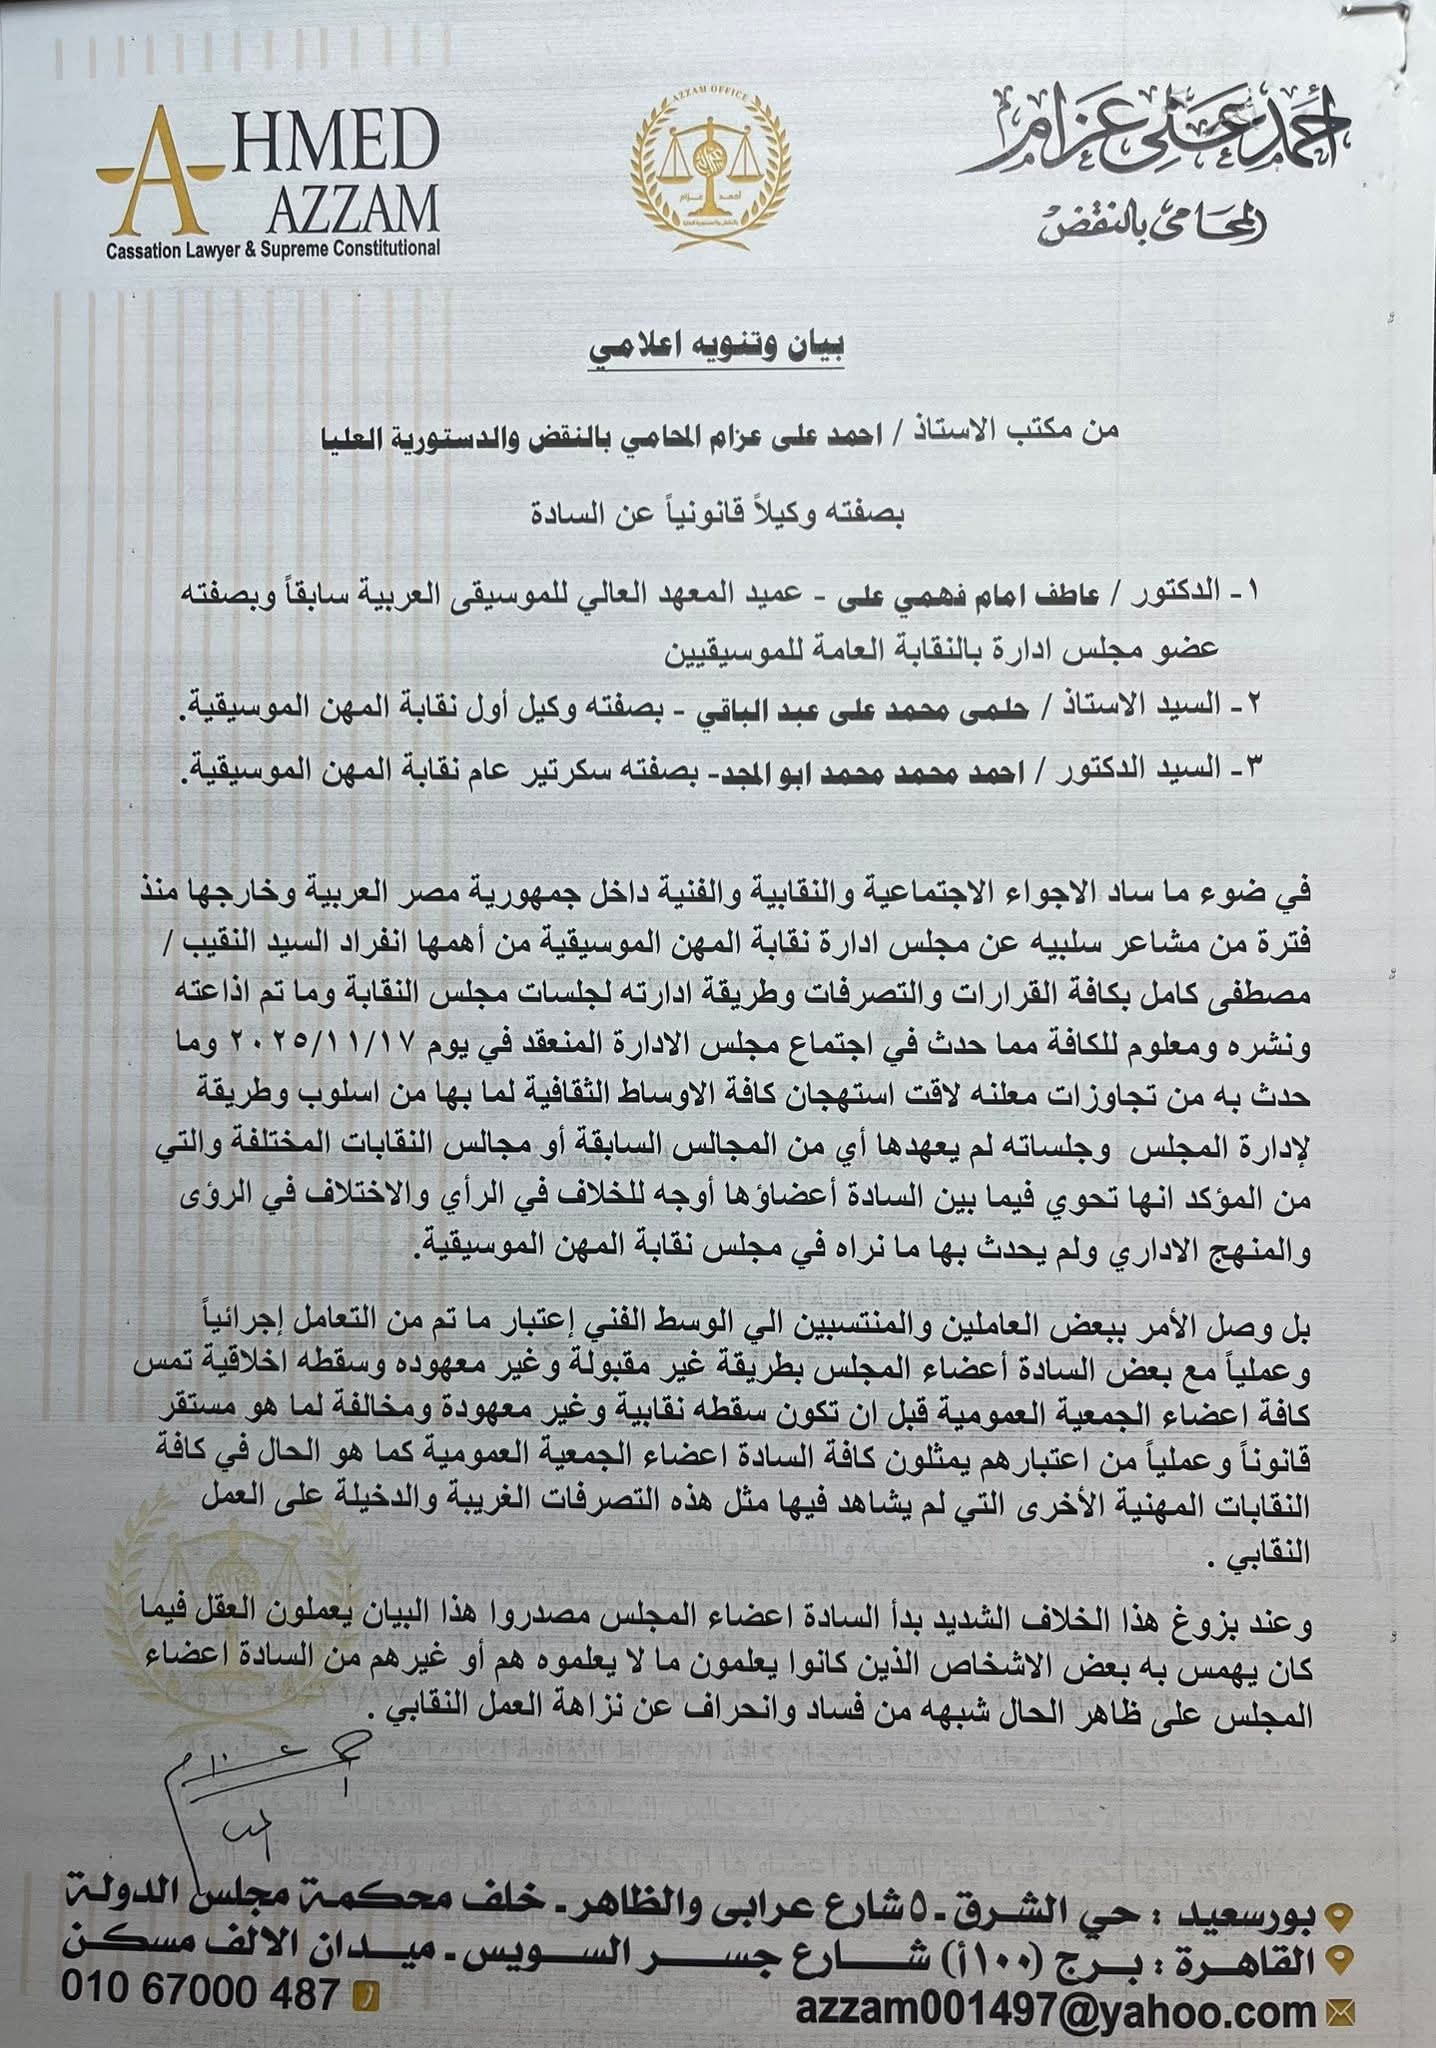 AHMED
AZZAM
Cassation Lawyer & Supreme Constitutional
AZZAM OFFICE
احمد عزام
أحمد على عزام
المحامى بالنقض
بيان وتنويه اعلامي
من مكتب الاستاذ / احمد على عزام المحامي بالنقض والدستورية العليا
بصفته وكيلاً قانونياً عن السادة
١- الدكتور / عاطف امام فهمي على - عميد المعهد العالي للموسيقى العربية سابقاً وبصفته
عضو مجلس ادارة بالنقابة العامة للموسيقيين
٢- السيد الاستاذ / حلمى محمد على عبد الباقي - بصفته وكيل أول نقابة المهن الموسيقية.
٣- السيد الدكتور / احمد محمد محمد ابو المجد- بصفته سكرتير عام نقابة المهن الموسيقية.
في ضوء ما ساد الاجواء الاجتماعية والنقابية والفنية داخل جمهورية مصر العربية وخارجها منذ
فترة من مشاعر سلبيه عن مجلس ادارة نقابة المهن الموسيقية من أهمها انفراد السيد النقيب /
مصطفى كامل بكافة القرارات والتصرفات وطريقة ادارته لجلسات مجلس النقابة وما تم اذاعته
ونشره ومعلوم للكافة مما حدث في اجتماع مجلس الادارة المنعقد في يوم ٢٠٢٥/١١/١٧ وما
حدث به من تجاوزات معلنه لاقت استهجان كافة الاوساط الثقافية لما بها من اسلوب وطريقة
لإدارة المجلس وجلساته لم يعهدها أي من المجالس السابقة أو مجالس النقابات المختلفة والتي
من المؤكد انها تحوي فيما بين السادة أعضاؤها أوجه للخلاف في الرأي والاختلاف في الرؤى
والمنهج الاداري ولم يحدث بها ما نراه في مجلس نقابة المهن الموسيقية.
بل وصل الأمر ببعض العاملين والمنتسبين الي الوسط الفني إعتبار ما تم من التعامل إجرائياً
وعملياً مع بعض السادة أعضاء المجلس بطريقة غير مقبولة وغير معهوده وسقطه اخلاقية تمس
كافة اعضاء الجمعية العمومية قبل ان تكون سقطه نقابية وغير معهودة ومخالفة لما هو مستقر
قانوناً وعملياً من اعتبارهم يمثلون كافة السادة اعضاء الجمعية العمومية كما هو الحال في كافة
النقابات المهنية الأخرى التي لم يشاهد فيها مثل هذه التصرفات الغريبة والدخيلة على العمل
النقابي .
وعند بزوغ هذا الخلاف الشديد بدأ السادة اعضاء المجلس مصدروا هذا البيان يعملون العقل فيما
كان يهمس به بعض الاشخاص الذين كانوا يعلمون ما لا يعلموه هم أو غيرهم من السادة اعضاء
المجلس على ظاهر الحال شبهه من فساد وانحراف عن نزاهة العمل النقابي .
بورسعيد : حي الشرق - ٥ شارع عرابى والظاهر - خلف محكمة مجلس الدولة
القاهرة : برج (١٠٠أ) شارع جسر السويس - ميدان الالف مسكن
010 67000 487
azzam001497@yahoo.com